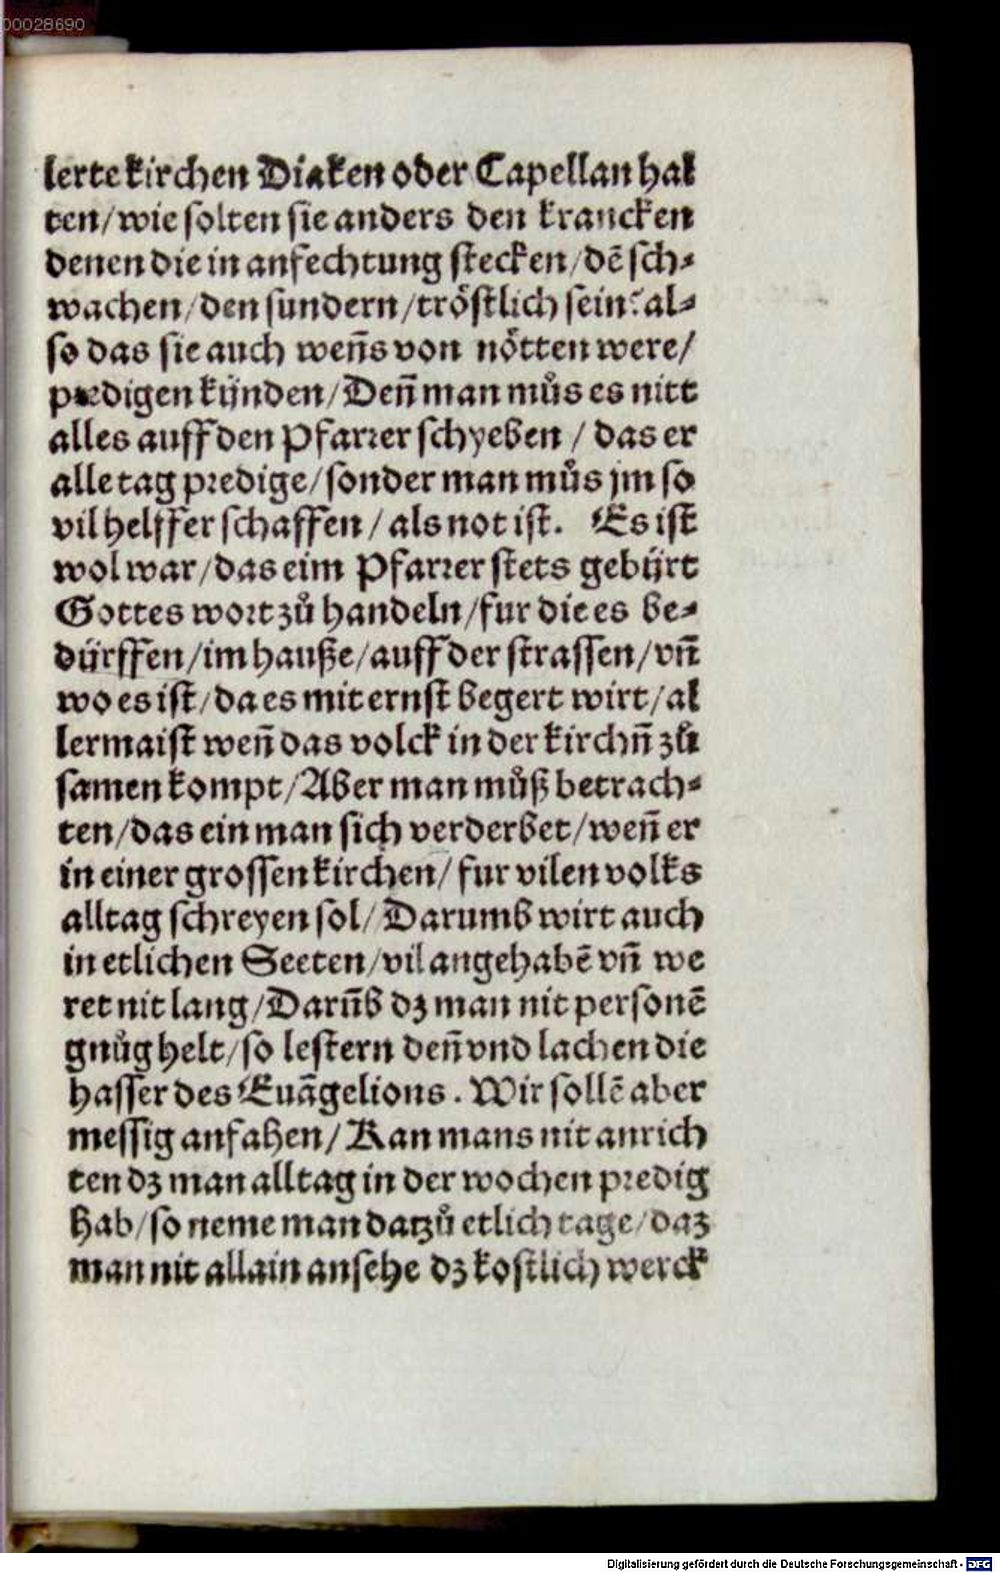 00028690
lerte kirchen Diaken oder Capellan hal
ten/wie solten sie anders den krancken
denen die in anfechtung stecken/dē sch-
wachen/den sundern/tröstlich sein? al-
so das sie auch wen̄s von nötten were/
predigen kijnden/Den̄ man můs es nitt
alles auff den Pfarrer schyeben / das er
alle tag predige/sonder man můs jm so
vil helffer schaffen / als not ist. Es ist
wol war/das eim Pfarrer stets gebijrt
Gottes wort zů handeln/fur die es be-
dürffen/im hauße/auff der strassen/vn̄
wo es ist/da es mit ernst begert wirt/al
lermaist wen̄ das volck in der kirchn̄ zů
samen kompt/Aber man můß betrach-
ten/das ein man sich verderbet/wen̄ er
in einer grossen kirchen/ fur vilen volks
alltag schreyen sol/Darumb wirt auch
in etlichen Seeten/vil angehabē vn̄ we
ret nit lang/Darūb dz man nit personē
gnůg helt/so lestern den̄ vnd lachen die
hasser des Euāgelions. Wir sollē aber
messig anfahen/Kan mans nit anrich
ten dz man alltag in der wochen predig
hab/so neme man datzů etlich tage/daz
man nit allain ansehe dz kostlich werck
Digitalisierung gefördert durch die Deutsche Forschungsgemeinschaft - DFG